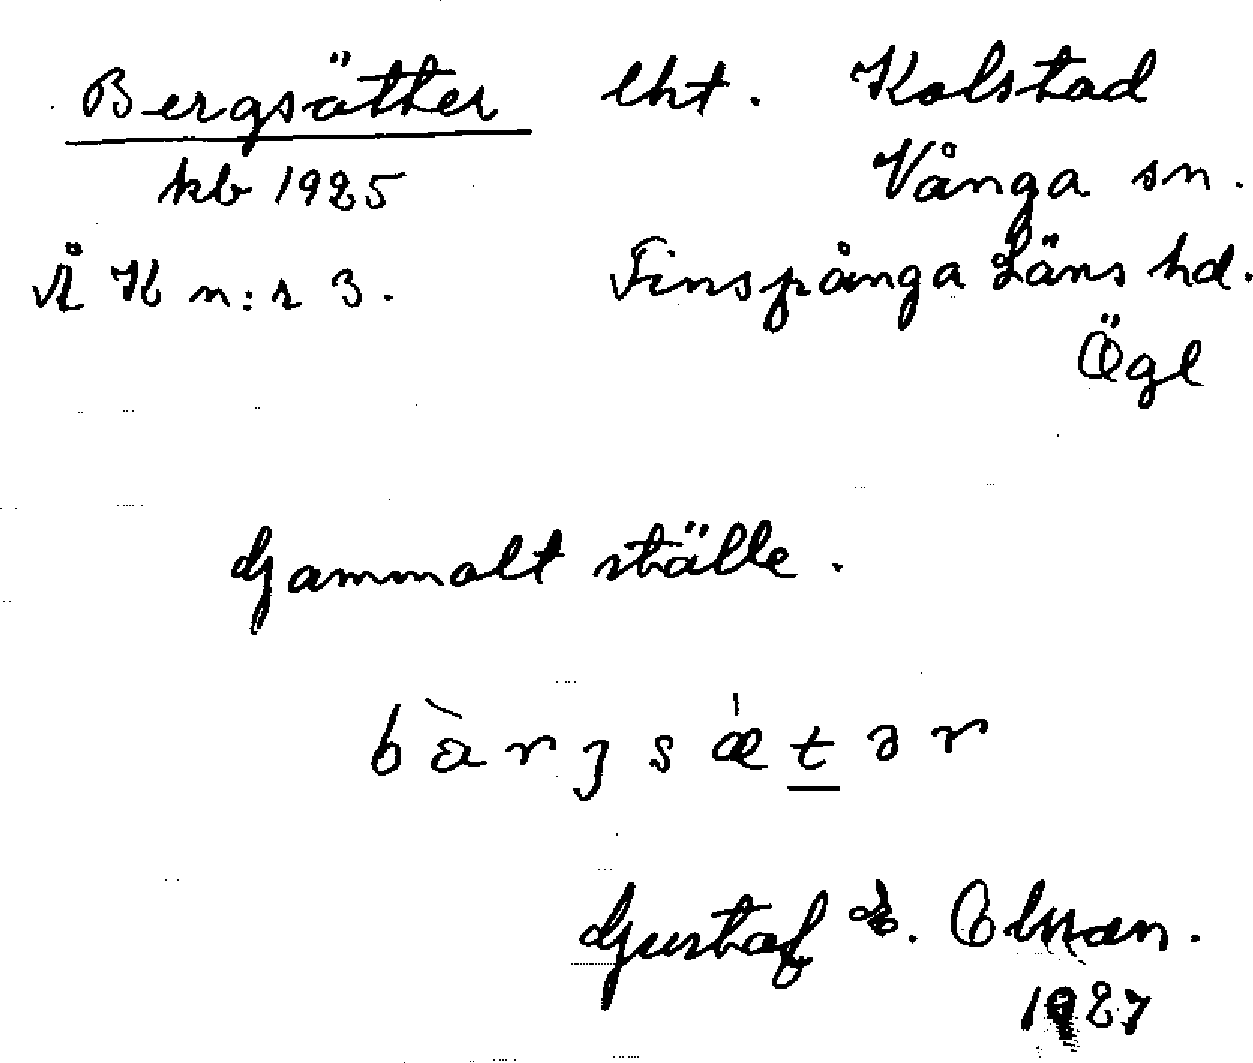 Bergsätter lht. Kolstad
kb 1925 Vånga sn.
ÄK n:r 3. Finspånga Läns hd.
Ögl
Gammalt ställe.
bàrȷsǽtər
Gustaf E. Olsson.
1927